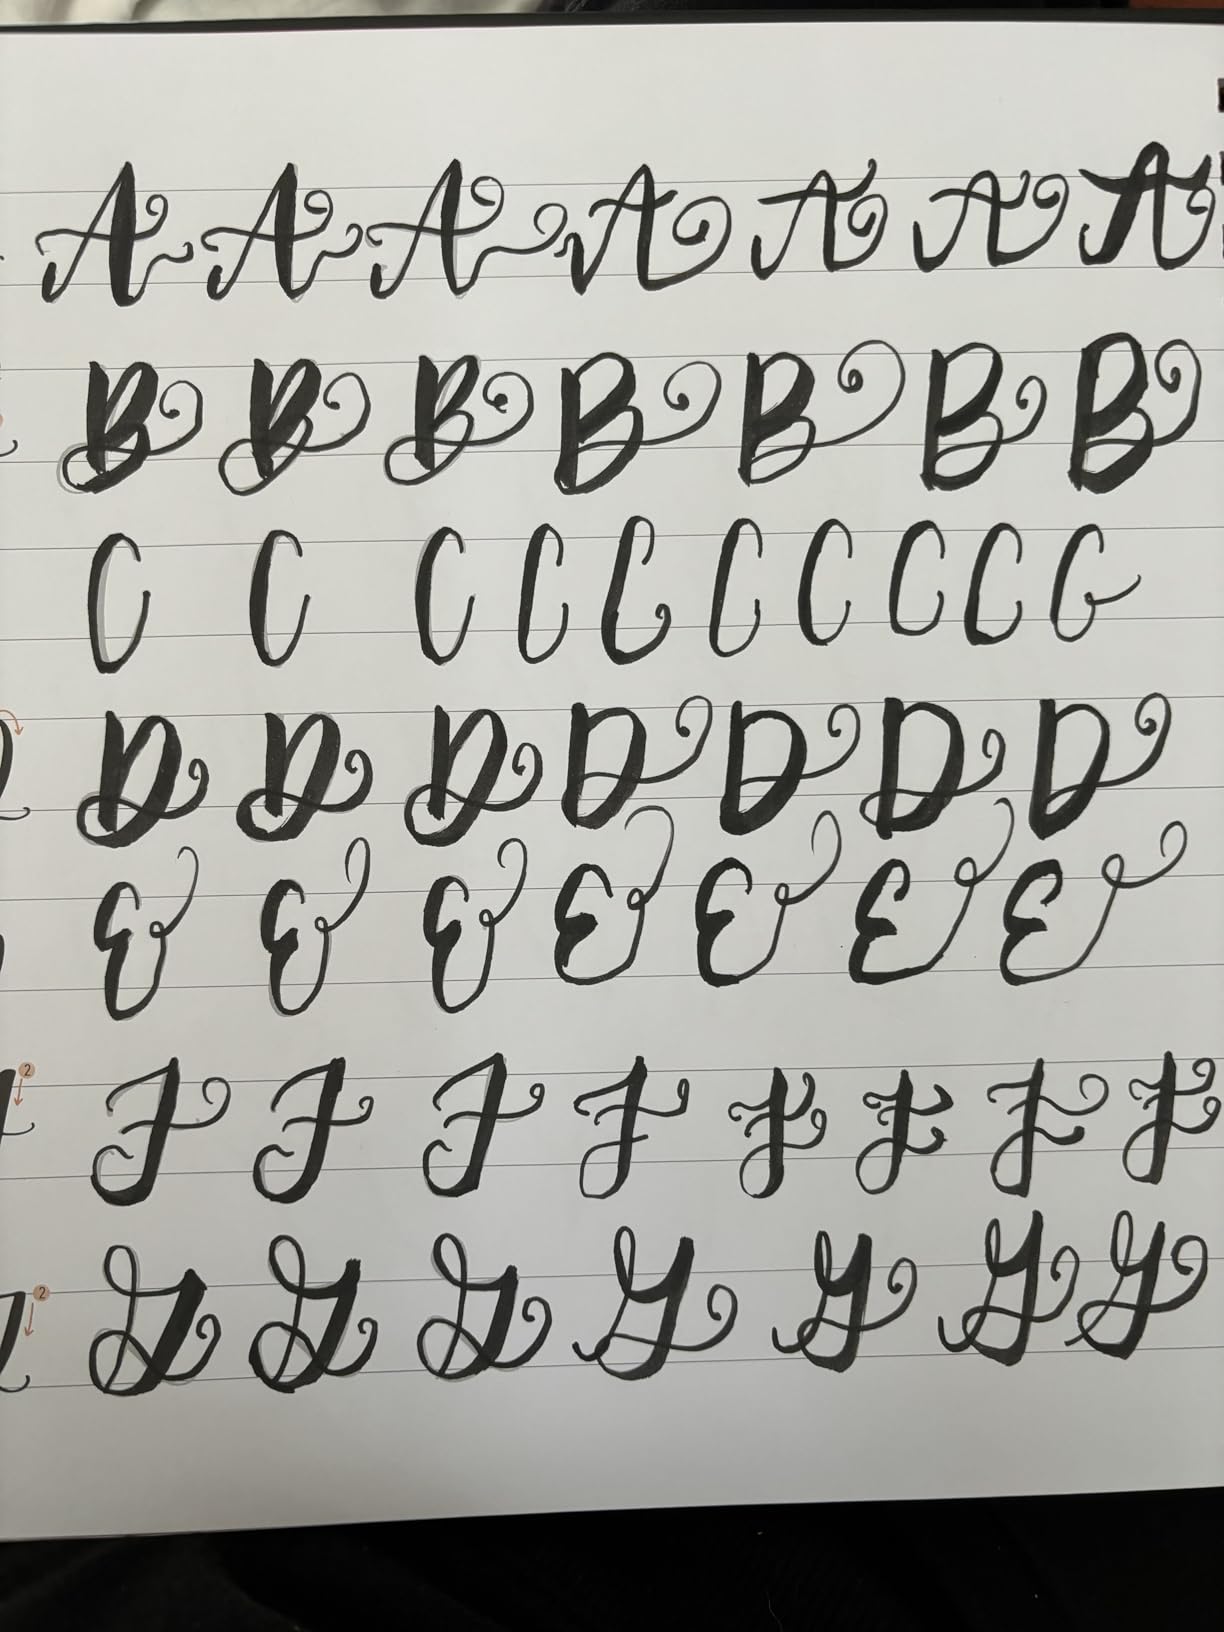 A A A A A A A
B B B B B B B
C C C C C C C C C C
D D D D D D D
E E E E E E E
2
F F F F F F F F
2
G G G G G G G